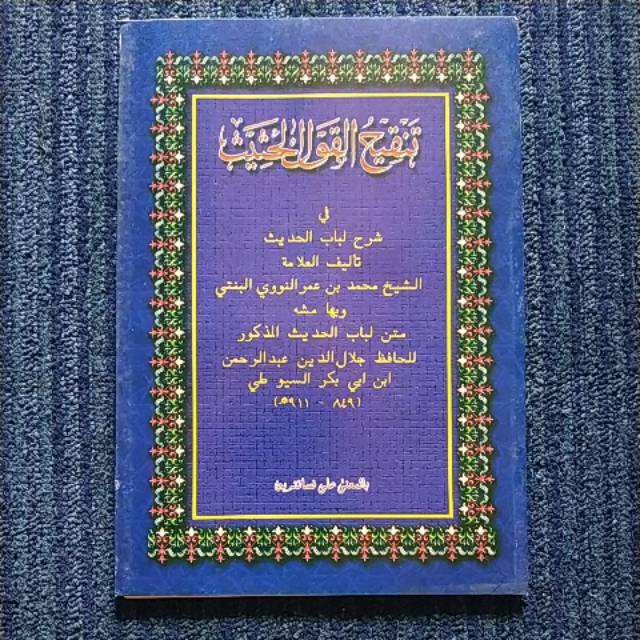 تنقيح القول الحثيث
في
شرح لباب الحديث
تأليف العلامة
الشيخ محمد بن عمر النووي البنتني
وبهامشه
متن لباب الحديث المذكور
للحافظ جلال الدين عبد الرحمن
ابن ابي بكر السيوطي
(٨٤٩ - ٩١١ھ)
بالمعنى على فسانترين